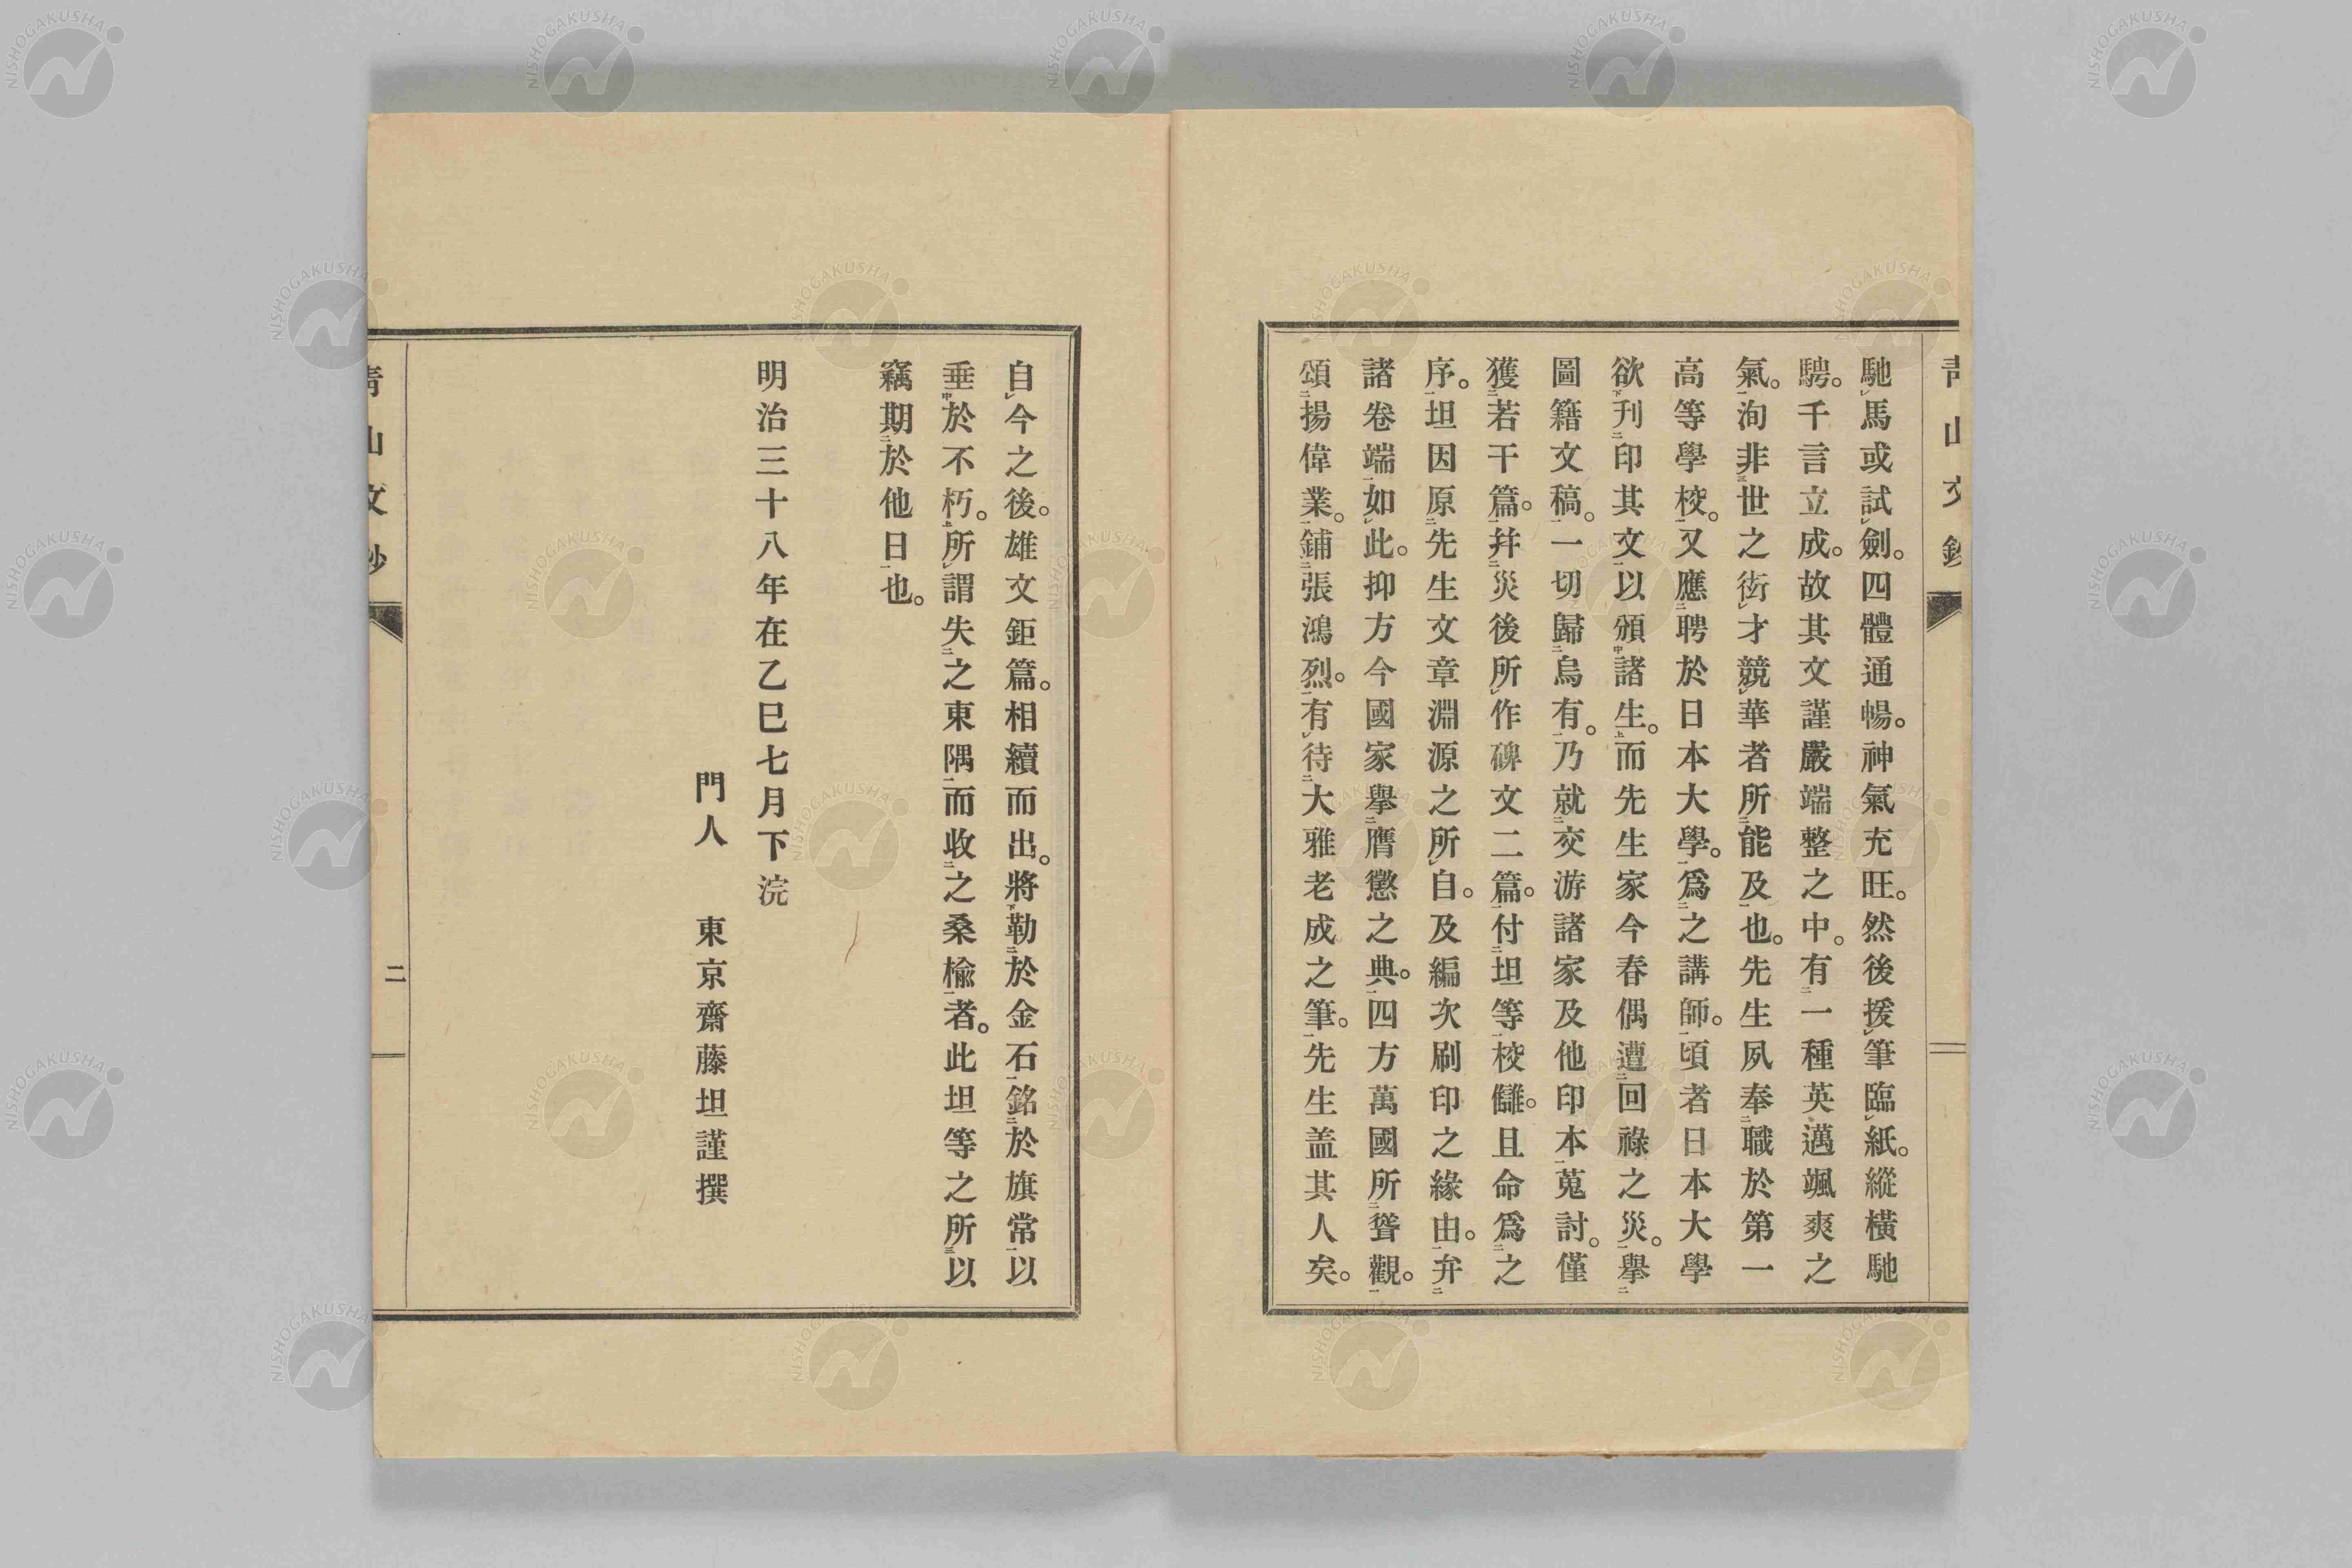 青山文鈔
馳馬或試劍。四體通暢。神氣充旺。然後援筆臨紙。縱橫馳
騁。千言立成。故其文謹嚴端整之中。有一種英邁颯爽之
氣。洵非世之衒才競華者所能及也。先生夙奉職於第一
高等學校。又應聘於日本大學。爲之講師。頃者日本大學
欲刊印其文以頒諸生。而先生家今春偶遭回祿之災。擧
圖籍文稿。一切歸烏有。乃就交游諸家及他印本蒐討。僅
獲若干篇。幷災後所作碑文二篇。付坦等校讎。且命爲之
序。坦因原先生文章淵源之所自。及編次刷印之緣由。弁
諸卷端如此。抑方今國家擧膺懲之典。四方萬國所聳觀。
頌揚偉業。鋪張鴻烈。有待大雅老成之筆。先生盖其人矣。
自今之後。雄文鉅篇。相續而出。將勒於金石銘於旗常以
垂於不朽。所謂失之東隅而收之桑楡者。此坦等之所以
竊期於他日也。
明治三十八年在乙巳七月下浣
門人 東京齋藤坦謹撰
青山文鈔
二
NISHOGAKUSHA